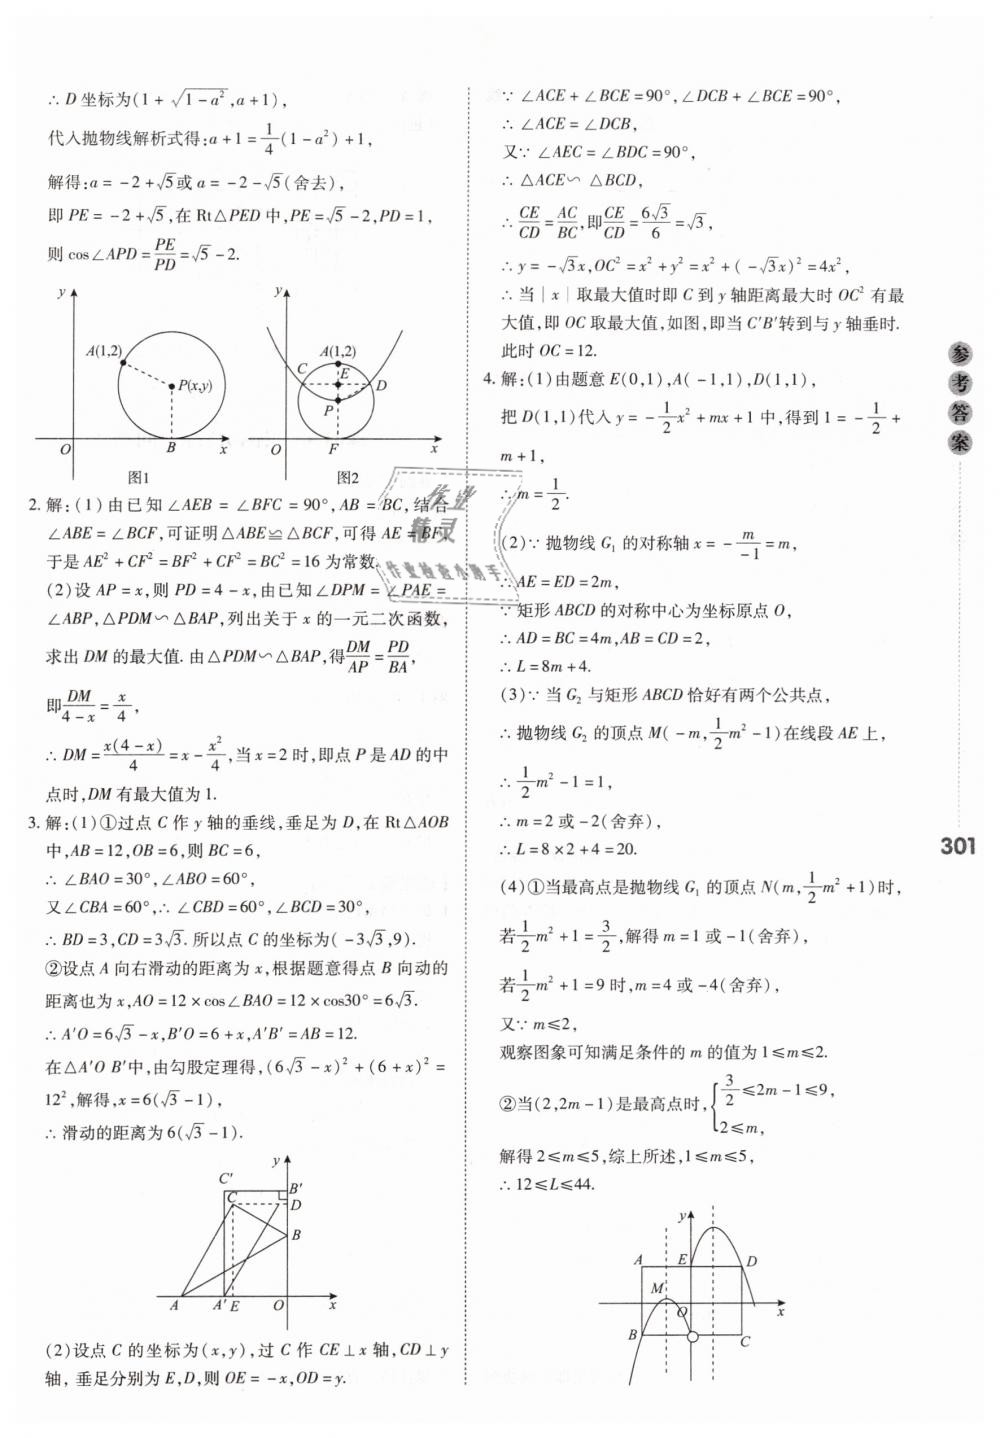 ∴ D 坐标为(1 + √(1 - a²), a + 1),
代入抛物线解析式得: a + 1 = 1/4(1 - a²) + 1,
解得: a = -2 + √5或 a = -2 - √5(舍去),
即 PE = -2 + √5, 在 Rt△PED 中, PE = √5 - 2, PD = 1,
则 cos∠APD = PE/PD = √5 - 2.
y
A(1,2)
P(x,y)
O B x
图1
y
A(1,2)
C E D
P
O F x
图2
2. 解: (1) 由已知 ∠AEB = ∠BFC = 90°, AB = BC, 结合
∠ABE = ∠BCF, 可证明△ABE≌△BCF, 可得 AE = BF,
于是 AE² + CF² = BF² + CF² = BC² = 16 为常数.
(2)设 AP = x, 则 PD = 4 - x, 由已知∠DPM = ∠PAE =
∠ABP, △PDM∽△BAP, 列出关于 x 的一元二次函数,
求出 DM 的最大值. 由△PDM∽△BAP, 得DM/AP = PD/BA,
即DM/(4 - x) = x/4,
∴ DM = x(4 - x)/4 = x - x²/4, 当 x = 2 时, 即点 P 是 AD 的中
点时, DM 有最大值为 1.
3. 解: (1)①过点 C 作 y 轴的垂线, 垂足为 D, 在 Rt△AOB
中, AB = 12, OB = 6, 则 BC = 6,
∴ ∠BAO = 30°, ∠ABO = 60°,
又∠CBA = 60°, ∴ ∠CBD = 60°, ∠BCD = 30°,
∴ BD = 3, CD = 3√3. 所以点 C 的坐标为( -3√3, 9).
②设点 A 向右滑动的距离为 x, 根据题意得点 B 向动的
距离也为 x, AO = 12 × cos∠BAO = 12 × cos30° = 6√3.
∴ A′O = 6√3 - x, B′O = 6 + x, A′B′ = AB = 12.
在△A′O B′中, 由勾股定理得, (6√3 - x)² + (6 + x)² =
12², 解得, x = 6(√3 - 1),
∴ 滑动的距离为 6(√3 - 1).
y
C′ B′
C D
B
A A′ E O x
(2)设点 C 的坐标为 (x, y), 过 C 作 CE⊥x 轴, CD⊥y
轴, 垂足分别为 E, D, 则 OE = -x, OD = y.
∵ ∠ACE + ∠BCE = 90°, ∠DCB + ∠BCE = 90°,
∴ ∠ACE = ∠DCB,
又∵ ∠AEC = ∠BDC = 90°,
∴ △ACE∽ △BCD,
∴ CE/CD = AC/BC, 即CE/CD = 6√3/6 = √3,
∴ y = -√3x, OC² = x² + y² = x² + ( -√3x)² = 4x²,
∴ 当 | x | 取最大值时即 C 到 y 轴距离最大时 OC² 有最
大值, 即 OC 取最大值, 如图, 即当 C′B′转到与 y 轴垂时.
此时 OC = 12.
4. 解: (1)由题意 E(0,1), A( -1,1), D(1,1),
把 D(1,1)代入 y = -1/2x² + mx + 1 中, 得到 1 = -1/2 +
m + 1,
∴ m = 1/2.
(2)∵ 抛物线 G₁ 的对称轴 x = -m/-1 = m,
∴ AE = ED = 2m,
∵ 矩形 ABCD 的对称中心为坐标原点 O,
∴ AD = BC = 4m, AB = CD = 2,
∴ L = 8m + 4.
(3)∵ 当 G₂ 与矩形 ABCD 恰好有两个公共点,
∴ 抛物线 G₂ 的顶点 M( -m, 1/2m² - 1)在线段 AE 上,
∴ 1/2m² - 1 = 1,
∴ m = 2 或 -2(舍弃),
∴ L = 8 × 2 + 4 = 20.
(4)①当最高点是抛物线 G₁ 的顶点 N(m, 1/2m² + 1)时,
若1/2m² + 1 = 3/2, 解得 m = 1 或 -1(舍弃),
若1/2m² + 1 = 9 时, m = 4 或 -4(舍弃),
又∵ m≤2,
观察图象可知满足条件的 m 的值为 1≤m≤2.
②当(2, 2m - 1)是最高点时, { 3/2≤2m - 1≤9,
2≤m,
解得 2≤m≤5, 综上所述, 1≤m≤5,
∴ 12≤L≤44.
y
A E D
M
O x
B C
参考答案
301
作业
精灵
作业检查小助手